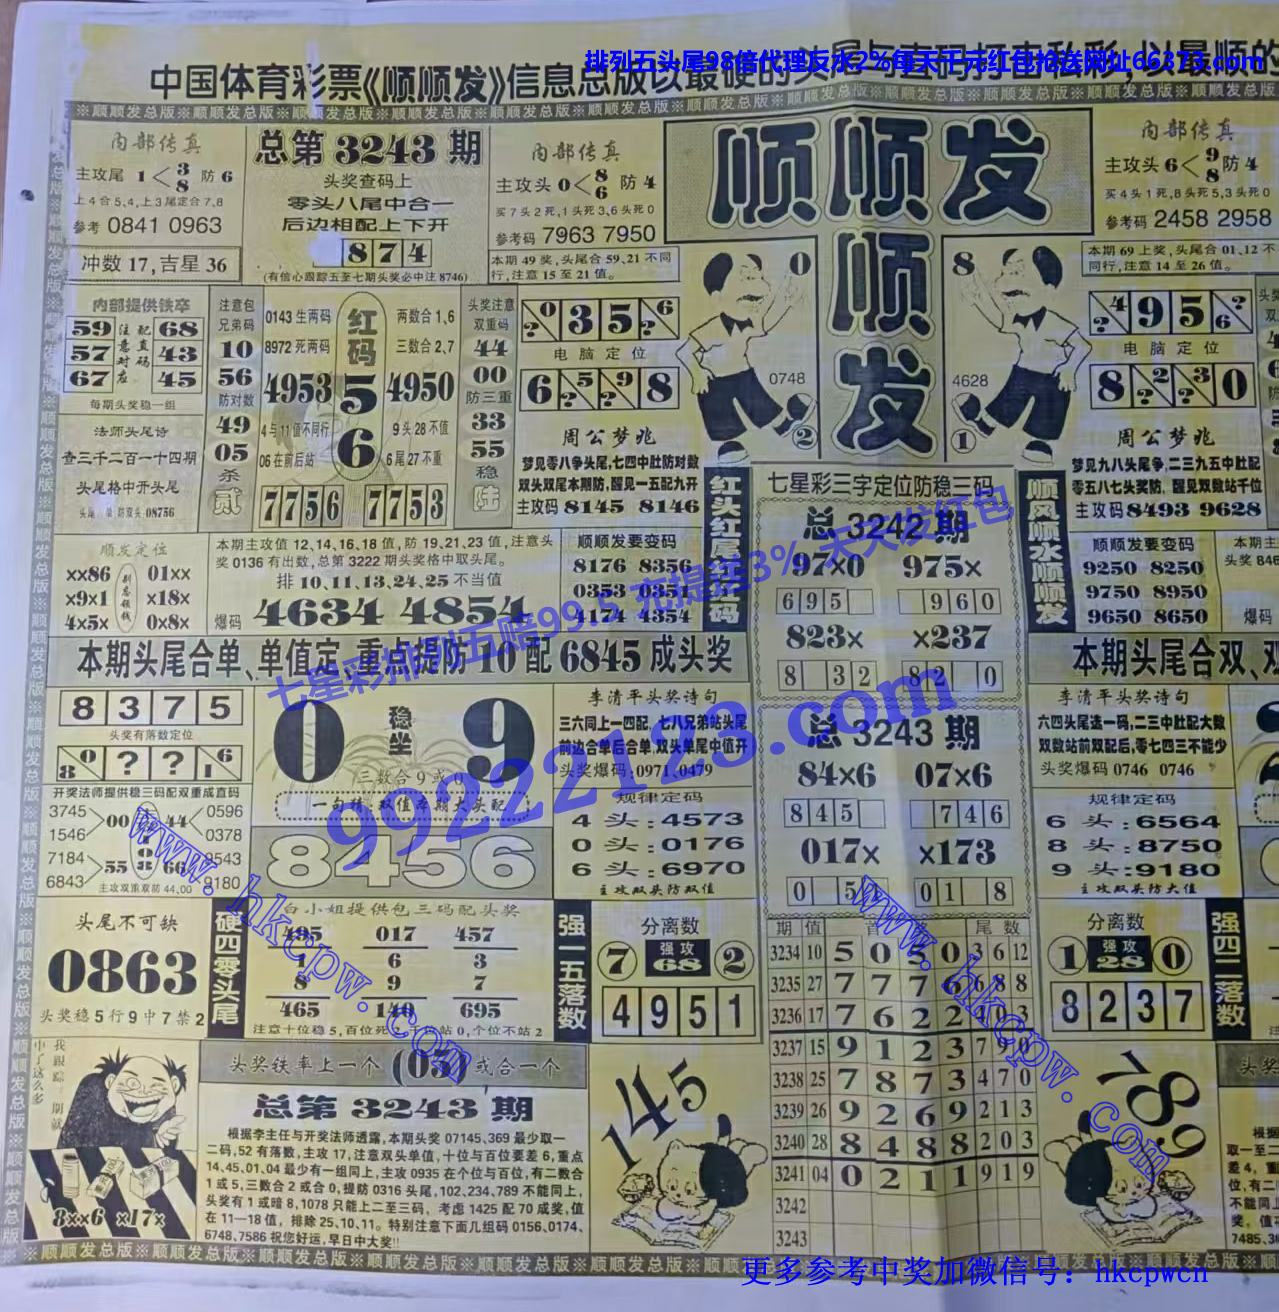 排列五头尾98倍代理反水2%每天千元红包抢送网址66373.com
中国体育彩票《顺顺发》信息总版以最硬的头尾与直码打击私彩，以最顺的
※顺顺发总版※顺顺发总版※顺顺发总版※顺顺发总版
内部传真
主攻尾 1 < 3 8 防 6
上4合5,4,上3尾定合7,8
参考 0841 0963
冲数 17,吉星 36
总第 3243 期
头奖查码上
零头八尾中合一
后边相配上下开
874
(有信心跟踪五至七期头奖必中注 8746)
内部传真
主攻头 0 < 8 6 防 4
买7头2死,1头死3,6头死0
参考码 7963 7950
本期 49 奖,头尾合 59,21 不同
行,注意 15 至 21 值。
顺顺发
顺
发
内部传真
主攻头 6 < 9 8 防 4
买4头1死,8头死5,3头死0
参考码 2458 2958
本期 69 上奖,头尾合 01,12 不
同行,注意 14 至 26 值。
内部提供铁卒
59 注配 68
57 意直 43
对码
67 应 45
每期头奖稳一组
法师头尾诗
查三千二百一十四期
头尾格中开头尾
防双头 08756
注意包
兄弟码
10
56
防对数
49
05
杀
贰
0143 生两码
8972 死两码
红码
两数合 1,6
三数合 2,7
4953 5 4950
4与11值不同行
6
9头28不值
06 在前后站
6尾27不重
7756 7753
头奖注意
双重码
44
00
防三重
33
55
稳
陆
? 0 3 5 ? 6
电脑定位
6 5 ? 9 ? 8
周公梦兆
梦见零八争头尾,七四中肚防对数
双头双尾本期防,醒见一五配九开
主攻码 8145 8146
0
0748
2
8
4628
1
? 4 9 5 6 ?
电脑定位
8 2 ? 3 ? 0
周公梦兆
梦见九八头尾争,二三九五中肚配
零五八七头奖防,醒见双数站千位
主攻码 8493 9628
顺发定位
××86 01××
×9×1 ×18×
4×5× 0×8×
本期主攻值 12,14,16,18 值,防 19,21,23 值,注意头
奖 0136 有出数,总第 3222 期头奖格中取头尾。
排 10,11,13,24,25 不当值
爆码 4634 4854
顺顺发要变码
8176 8356
0353 0351
4174 4354
七星彩三字定位防稳三码
总 3242 期
97×0 975×
695 960
823× ×237
8 32 82 0
顺风顺水顺顺发
顺顺发要变码
9250 8250
9750 8950
9650 8650
本期主
头奖 846
爆码
七星彩排列五赔99.5 充提送3% 天天发红包
本期头尾合单、单值定,重点提防 10 配 6845 成头奖
本期头尾合双、双
8375
头奖有落数定位
8 0 ? ? 1 6
开奖法师提供稳三码配双重成直码
3745
1546
00
44
0596
0378
7184
6843
55
66
9543
9180
主攻双重双防 44,00
0 稳坐 9
三数合 9 或 0
8456
李清平头奖诗句
三六同上一四配,七八兄弟站头尾
前边合单后合单,双头单尾中值开
头奖爆码:0971,0479
规律定码
4 头:4573
0 头:0176
6 头:6970
主攻双头防双值
总 3243 期
84×6 07×6
845 746
017× ×173
0 51 01 8
李清平头奖诗句
六四头尾选一码,二三中肚配大数
双数站前双配后,零七四三不能少
头奖爆码 0746 0746
规律定码
6 头:6564
8 头:8750
9 头:9180
主攻双头防大值
99222123.com
www.hkcpw.com
www.hkcpw.com
头尾不可缺
0863
头奖稳 5 行 9 中 7 禁 2
硬四零头尾
白小姐提供包三码配头奖
495 017 457
1 6 3
8 9 7
465 140 695
注意十位稳 5,百位死 站 0,个位不站 2
强一五落数
分离数
7 强攻 68 2
4951
期 值 尾数
3234 10 5 0 5 0 3 6 12
3235 27 7 7 7 6 6 8 8
3236 17 7 6 2 2 4 0 3
3237 15 9 1 2 3 7 9 0
3238 25 7 8 7 3 4 7 0
3239 26 9 2 6 9 2 1 3
3240 28 8 4 8 8 2 0 3
3241 04 0 2 1 1 9 1 9
3242
3243
分离数
1 强攻 28 0
8237
强四二落数
我跟踪 期就
中了这么多
8××6 ×17×
头奖铁率上一个 (05) 或合一个
总第 3243 期
根据李主任与开奖法师透露,本期头奖 07145,369 最少取一
二码,52 有落数,主攻 17,注意双头单值,十位与百位要差 6,重点
14,45,01,04 最少有一组同上,主攻 0935 在个位与百位,有二数合
1 或 5,三数合 2 或合 0,提防 0316 头尾,102,234,789 不能同上,
头奖有 1 或暗 8,1078 只能上二至三码,考虑 1425 配 70 成奖,值
在 11—18 值,排除 25,10,11。特别注意下面几组码 0156,0174,
6748,7586 祝您好运,早日中大奖!!
145
789
头奖
根据
取一至二
差 4,重
位,有二
不能同上
奖,值
7485,36
※顺顺发总版※顺顺发总版※顺顺发总版※顺顺发总版
更多参考中奖加微信号：hkcpwcn